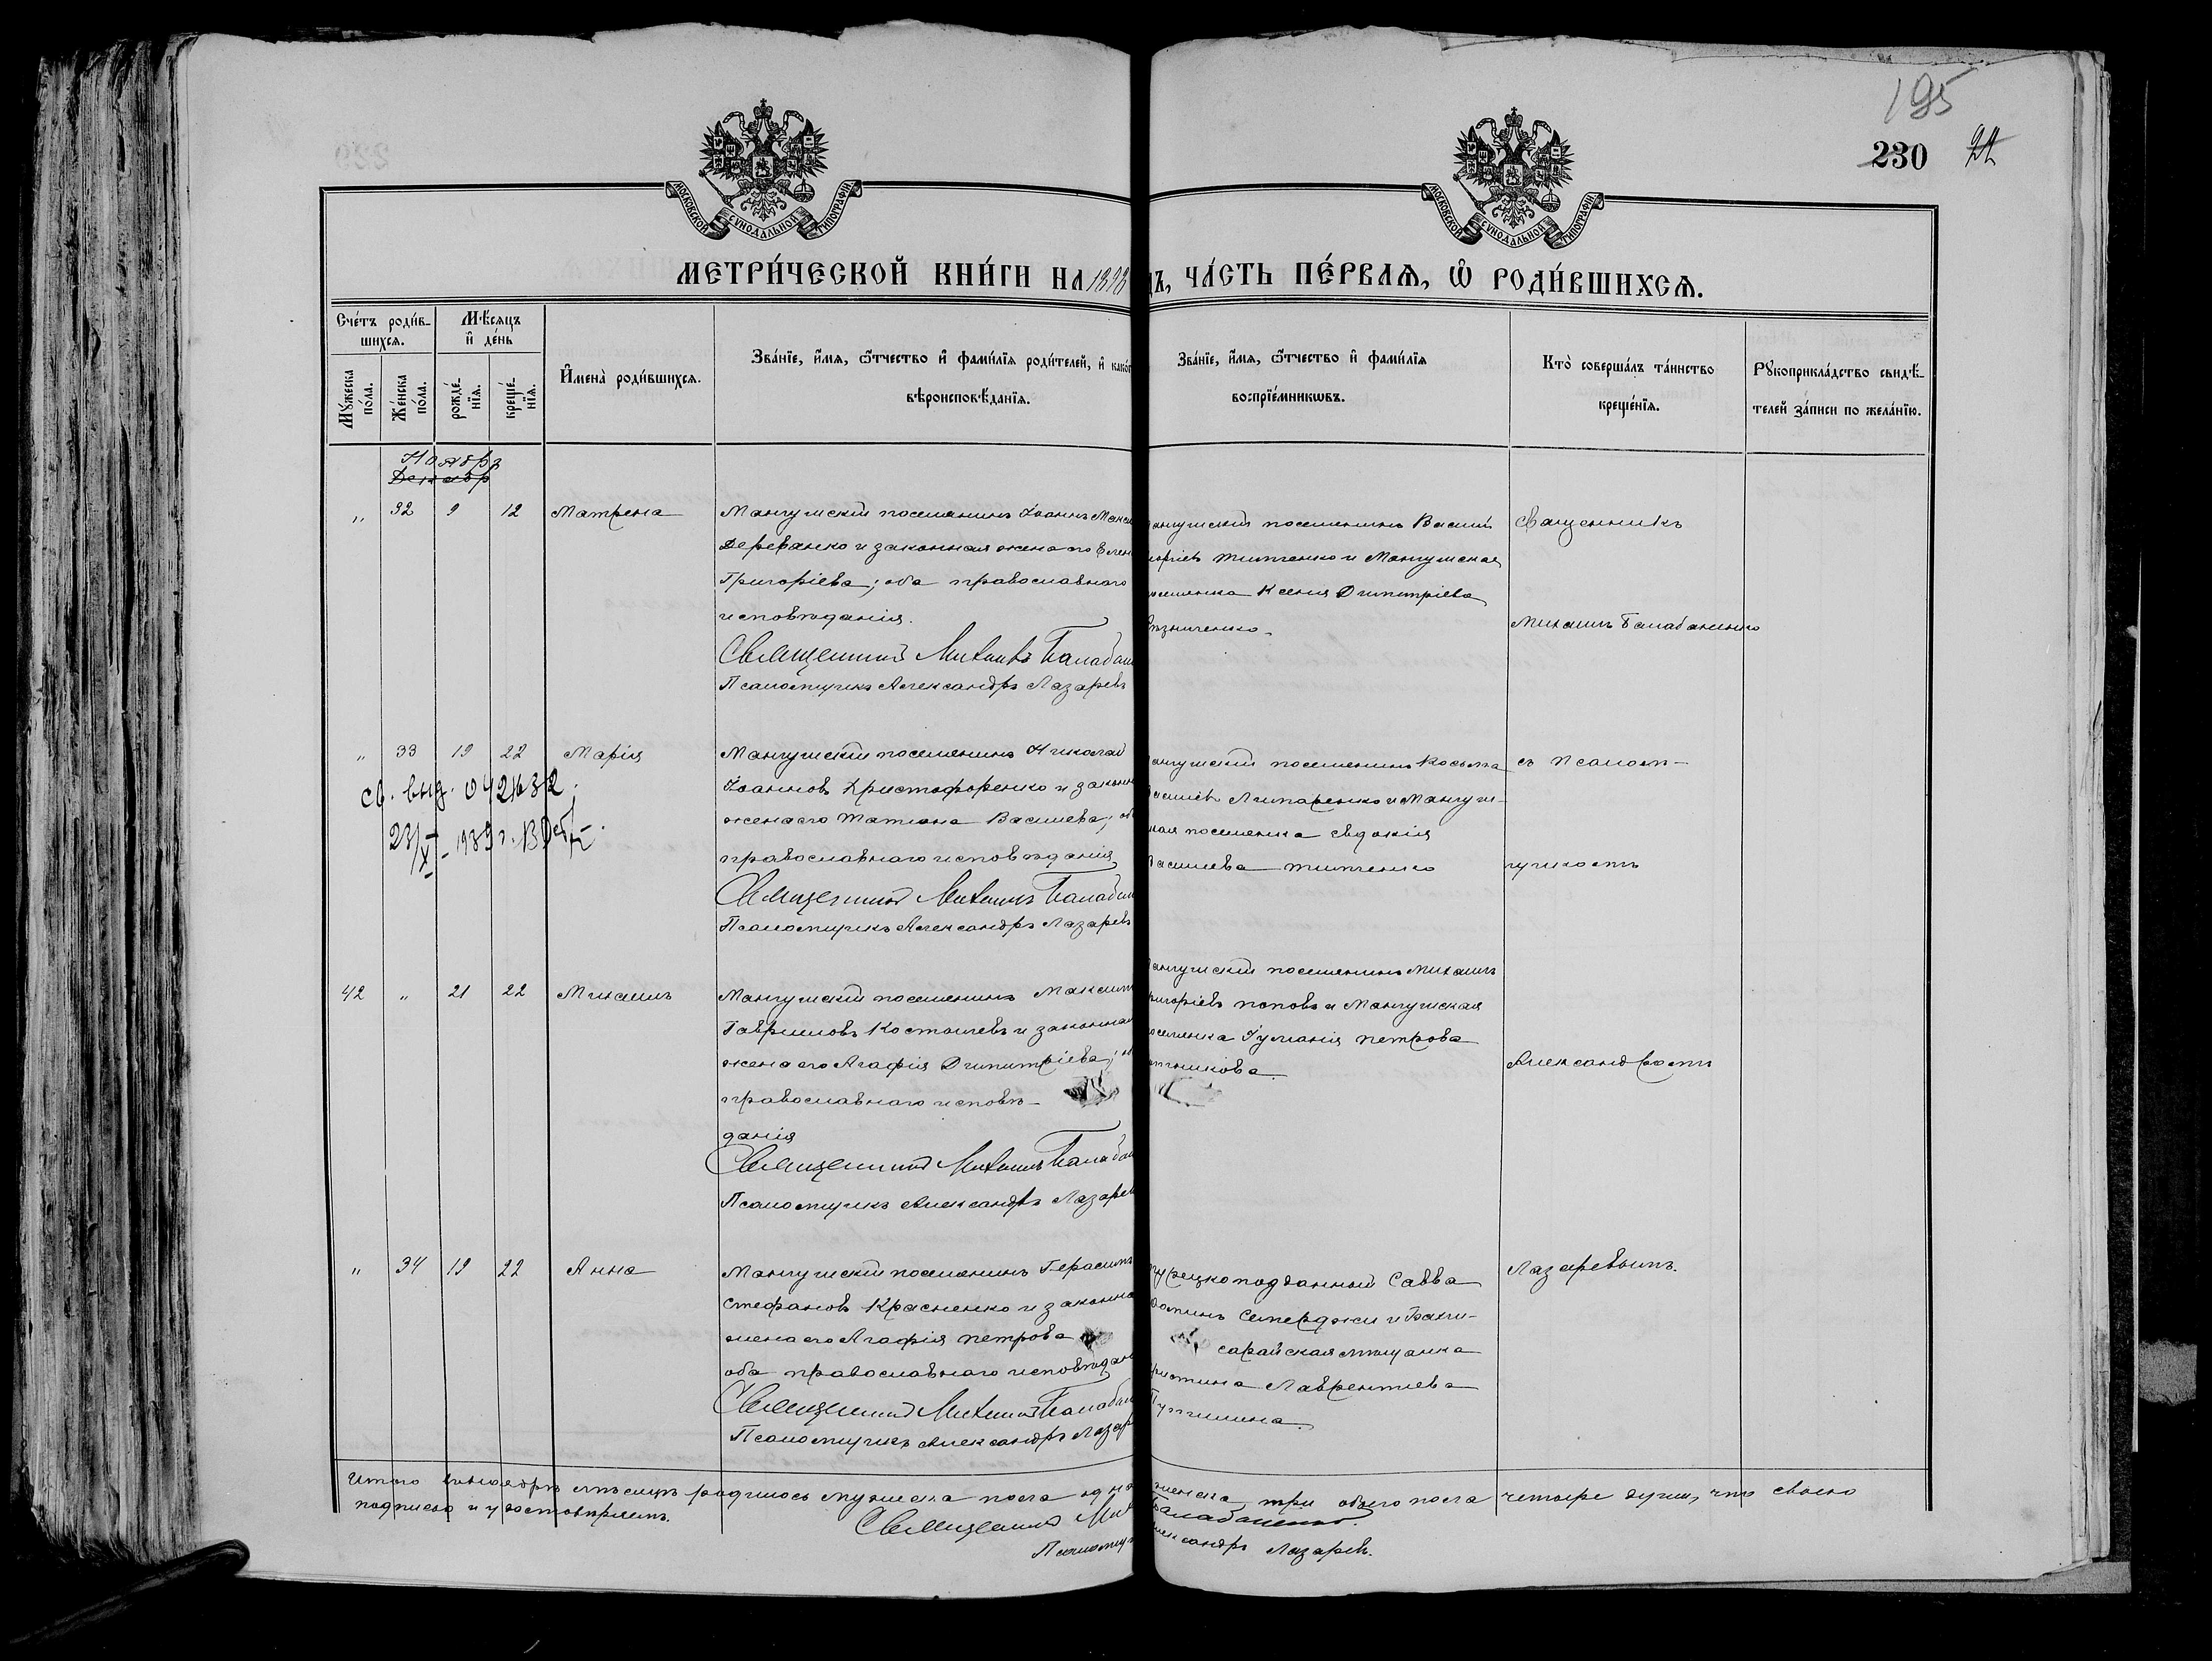 195
230
МОСКОВСКОЙ СѴНОДАЛЬНОЙ ТИПОГРАФІИ
МОСКОВСКОЙ СѴНОДАЛЬНОЙ ТИПОГРАФІИ
МЕТРИ́ЧЕСКОЙ КНИ́ГИ НА 1898
ЧА́СТЬ ПЕ́РВАѦ, Ѡ҆ РОДИ́ВШИХСѦ.
Сче́тъ роди́в-
шихсѧ.
Мѣ́сѧцъ
и҆ де́нь
Мꙋ́жеска
по́ла.
Же́нска
по́ла.
рожде́-
нїѧ.
креще́-
нїѧ.
И҆мена̀ роди́вшихсѧ.
Зва́нїе, и҆́мѧ, ѻ҆́тчество и҆ фами́лїѧ роди́телей, и҆ како́г
вѣроисповѣ́данїѧ.
Зва́нїе, и҆́мѧ, ѻ҆́тчество и҆ фами́лїѧ
воспрїе́мникѡвъ.
Кто̀ соверша́лъ та́инство
креще́нїѧ.
Рꙋкоприкла́дство свидѣ́-
телей за́писи по жела́нїю.
Ноябрь
Декабр
„ 32 9 12 Матрена
Мангушскій поселянинъ Іоаннъ Макси
Деревянко и законная жена его Елен
Григоріева; оба православнаго
исповѣданія.
Священникъ Михаилъ Балабан
Псаломщикъ Александръ Лазаревъ
ангушскій поселянинъ Василій
оргіевъ Титченко и Мангушская
оселянка Ксенія Димитріева
Священникъ
Михаилъ Балабаненко
„ 33 19 22 Марія
св. выд. 042632.
23/X - 1939 г.
Мангушскій поселянинъ Николай
Іоанновъ Христофоренко и законн
жена его Татіана Васильева; об
православнаго исповѣданія
Священникъ Михаилъ Балабан
Псаломщикъ Александръ Лазаревъ
ангушскій поселянинъ Косьма
асильевъ Липаренко и Мангуш-
кая поселянка Евдокія
асильева Титченко
съ Псалом-
щикомъ
42 „ 21 22 Михаилъ
Мангушскій поселянинъ Максимъ
Гавриловъ Костылевъ и законная
жена его Агафія Димитріева; об
православнаго исповѣ-
данія
Священникъ Михаилъ Балабан
Псаломщикъ Александръ Лазарев
ангушскій поселянинъ Михаилъ
ригоріевъ Поповъ и Мангушская
оселянка Іуліанія Петрова
Александромъ
„ 34 19 22 Анна
Мангушскій поселянинъ Герасимъ
Стефановъ Красненко и законна
жена его Агафія Петрова
оба православнаго исповѣдан
Священникъ Михаилъ Балабан
Псаломщикъ Александръ Лазар
урецкоподданный Савва
и Бахчи-
сарайская мѣщанка
ристина Лаврентіева
Лазаревымъ.
Итого въ ноябрѣ мѣсяцѣ родилось мужеска пола одна
женска три обоего пола четыре души, что своею
подписью и удостовѣряемъ.
Священникъ Мих
Балабаненко.
Псаломщ
лександръ Лазаревъ.